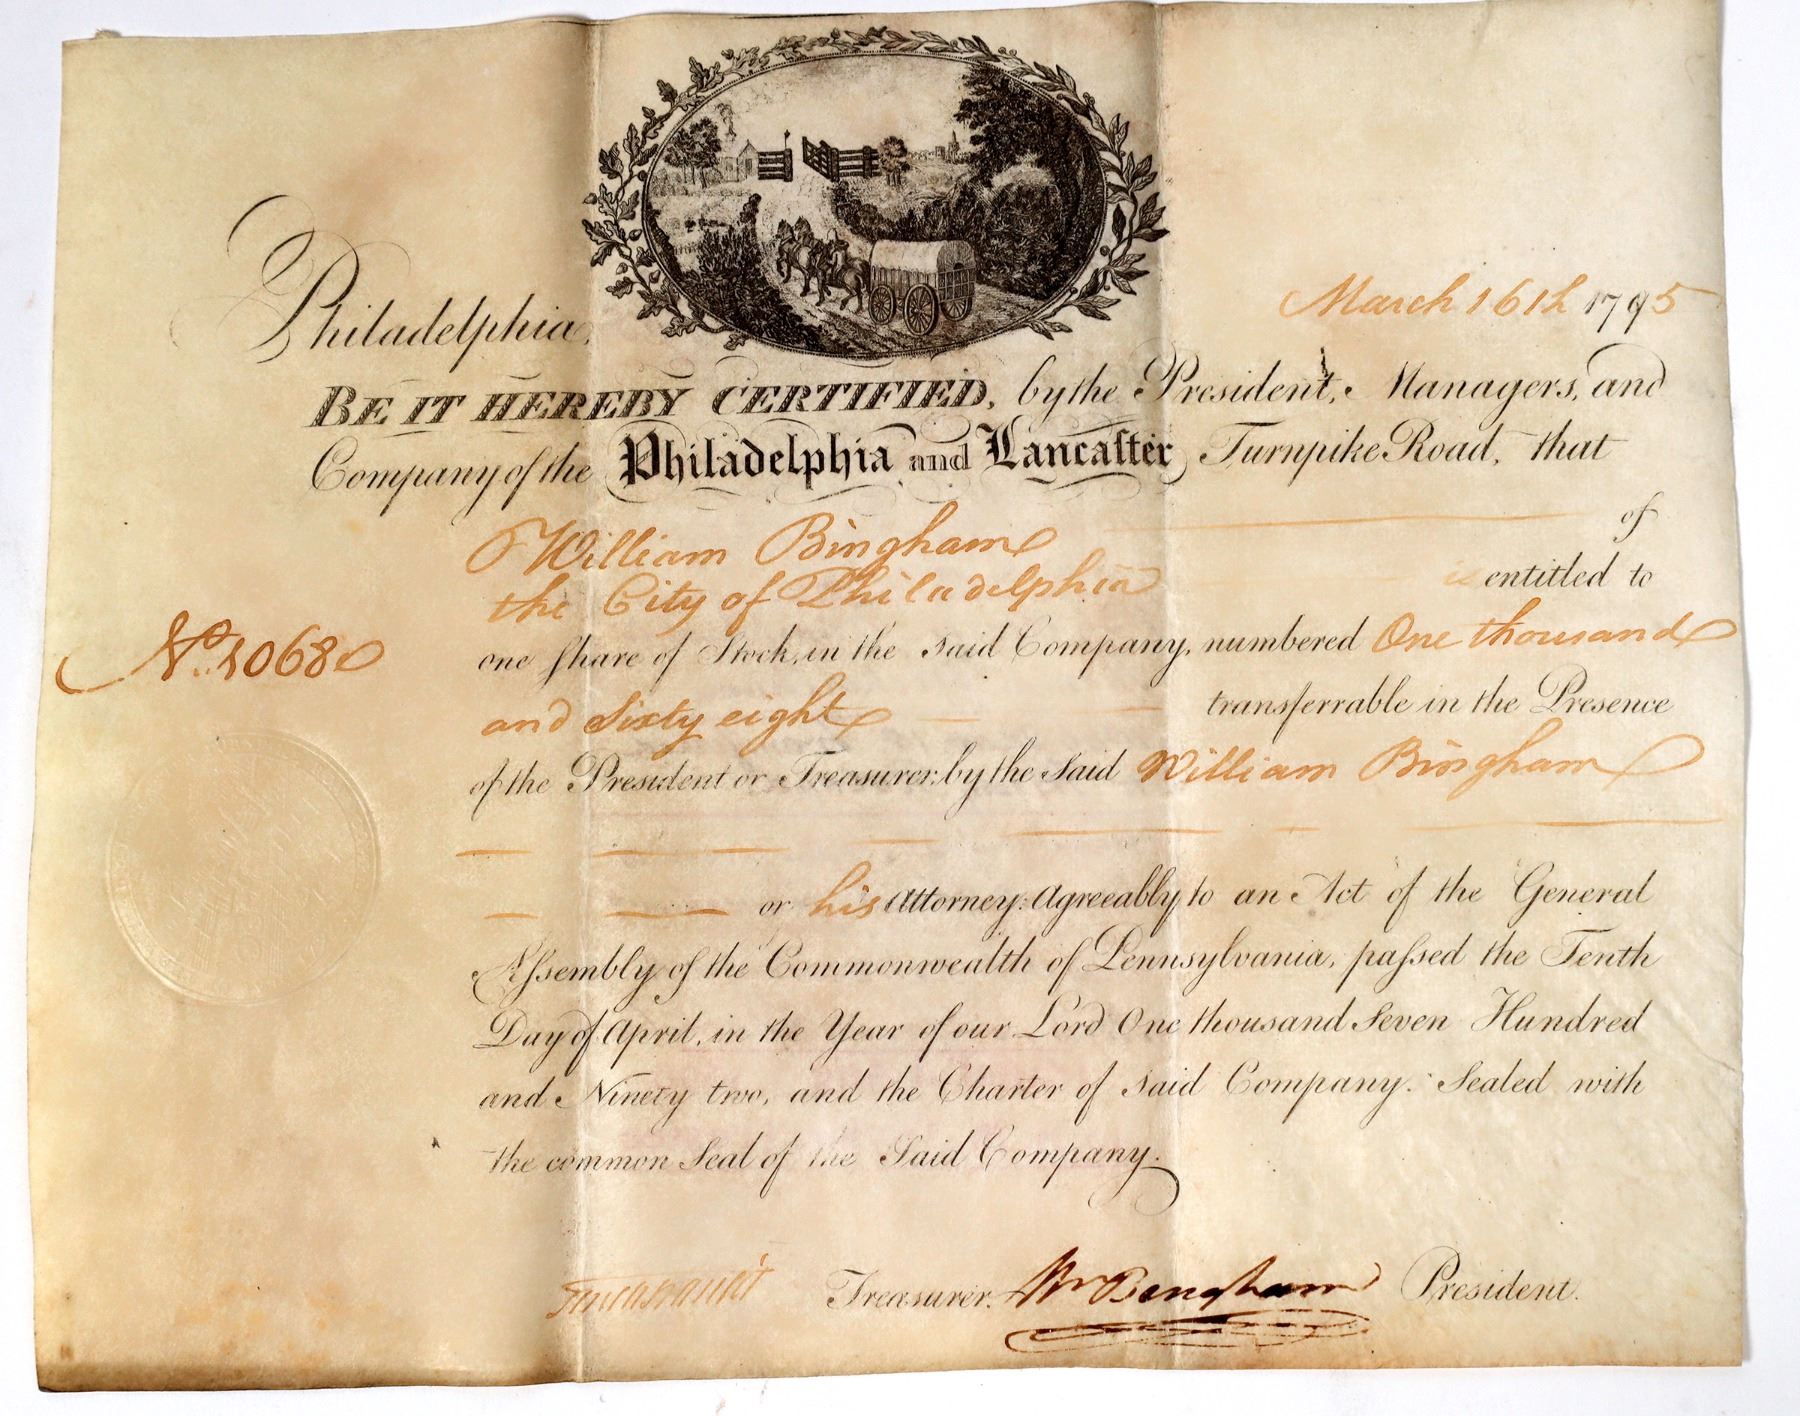 March 16th 1795
Philadelphia,
BE IT HEREBY CERTIFIED, by the President, Managers, and
Company of the Philadelphia and Lancaſter Turnpike Road, that
William Bingham of
the City of Philadelphia is entitled to
No. 1068
one ſhare of Stock, in the said Company, numbered One thousand
and Sixty eight transferrable in the Presence
of the President or Treasurer, by the Said William Bingham
or his Attorney: Agreeably to an Act of the General
Aſsembly of the Commonwealth of Pennsylvania, paſsed the Tenth
Day of April, in the Year of our Lord One thousand Seven Hundred
and Ninety two, and the Charter of said Company. Sealed with
the common Seal of the Said Company.
Treasurer. Wm Bingham President.